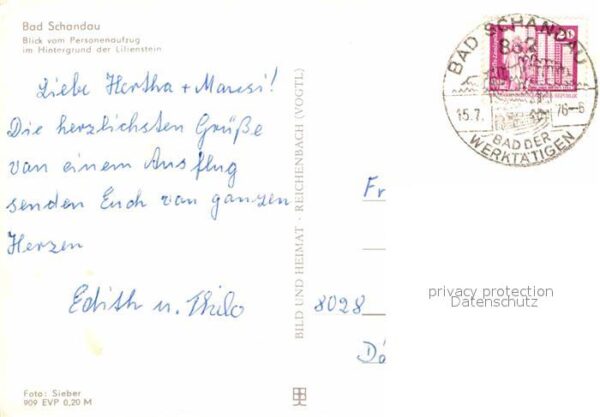 Bad Schandau
Blick vom Personenaufzug
im Hintergrund der Lilienstein
BAD SCHANDAU
832
20
15.7. 76-6
BAD DER
WERKTÄTIGEN
Liebe Hertha + Maresi!
Die herzlichsten Grüße
van einem Ausflug
senden Euch van ganzen
Herzen
Edith u. Thilo
BILD UND HEIMAT · REICHENBACH (VOGTL)
Fr
8028
privacy protection
Datenschutz
Foto: Sieber
909 EVP 0,20 M